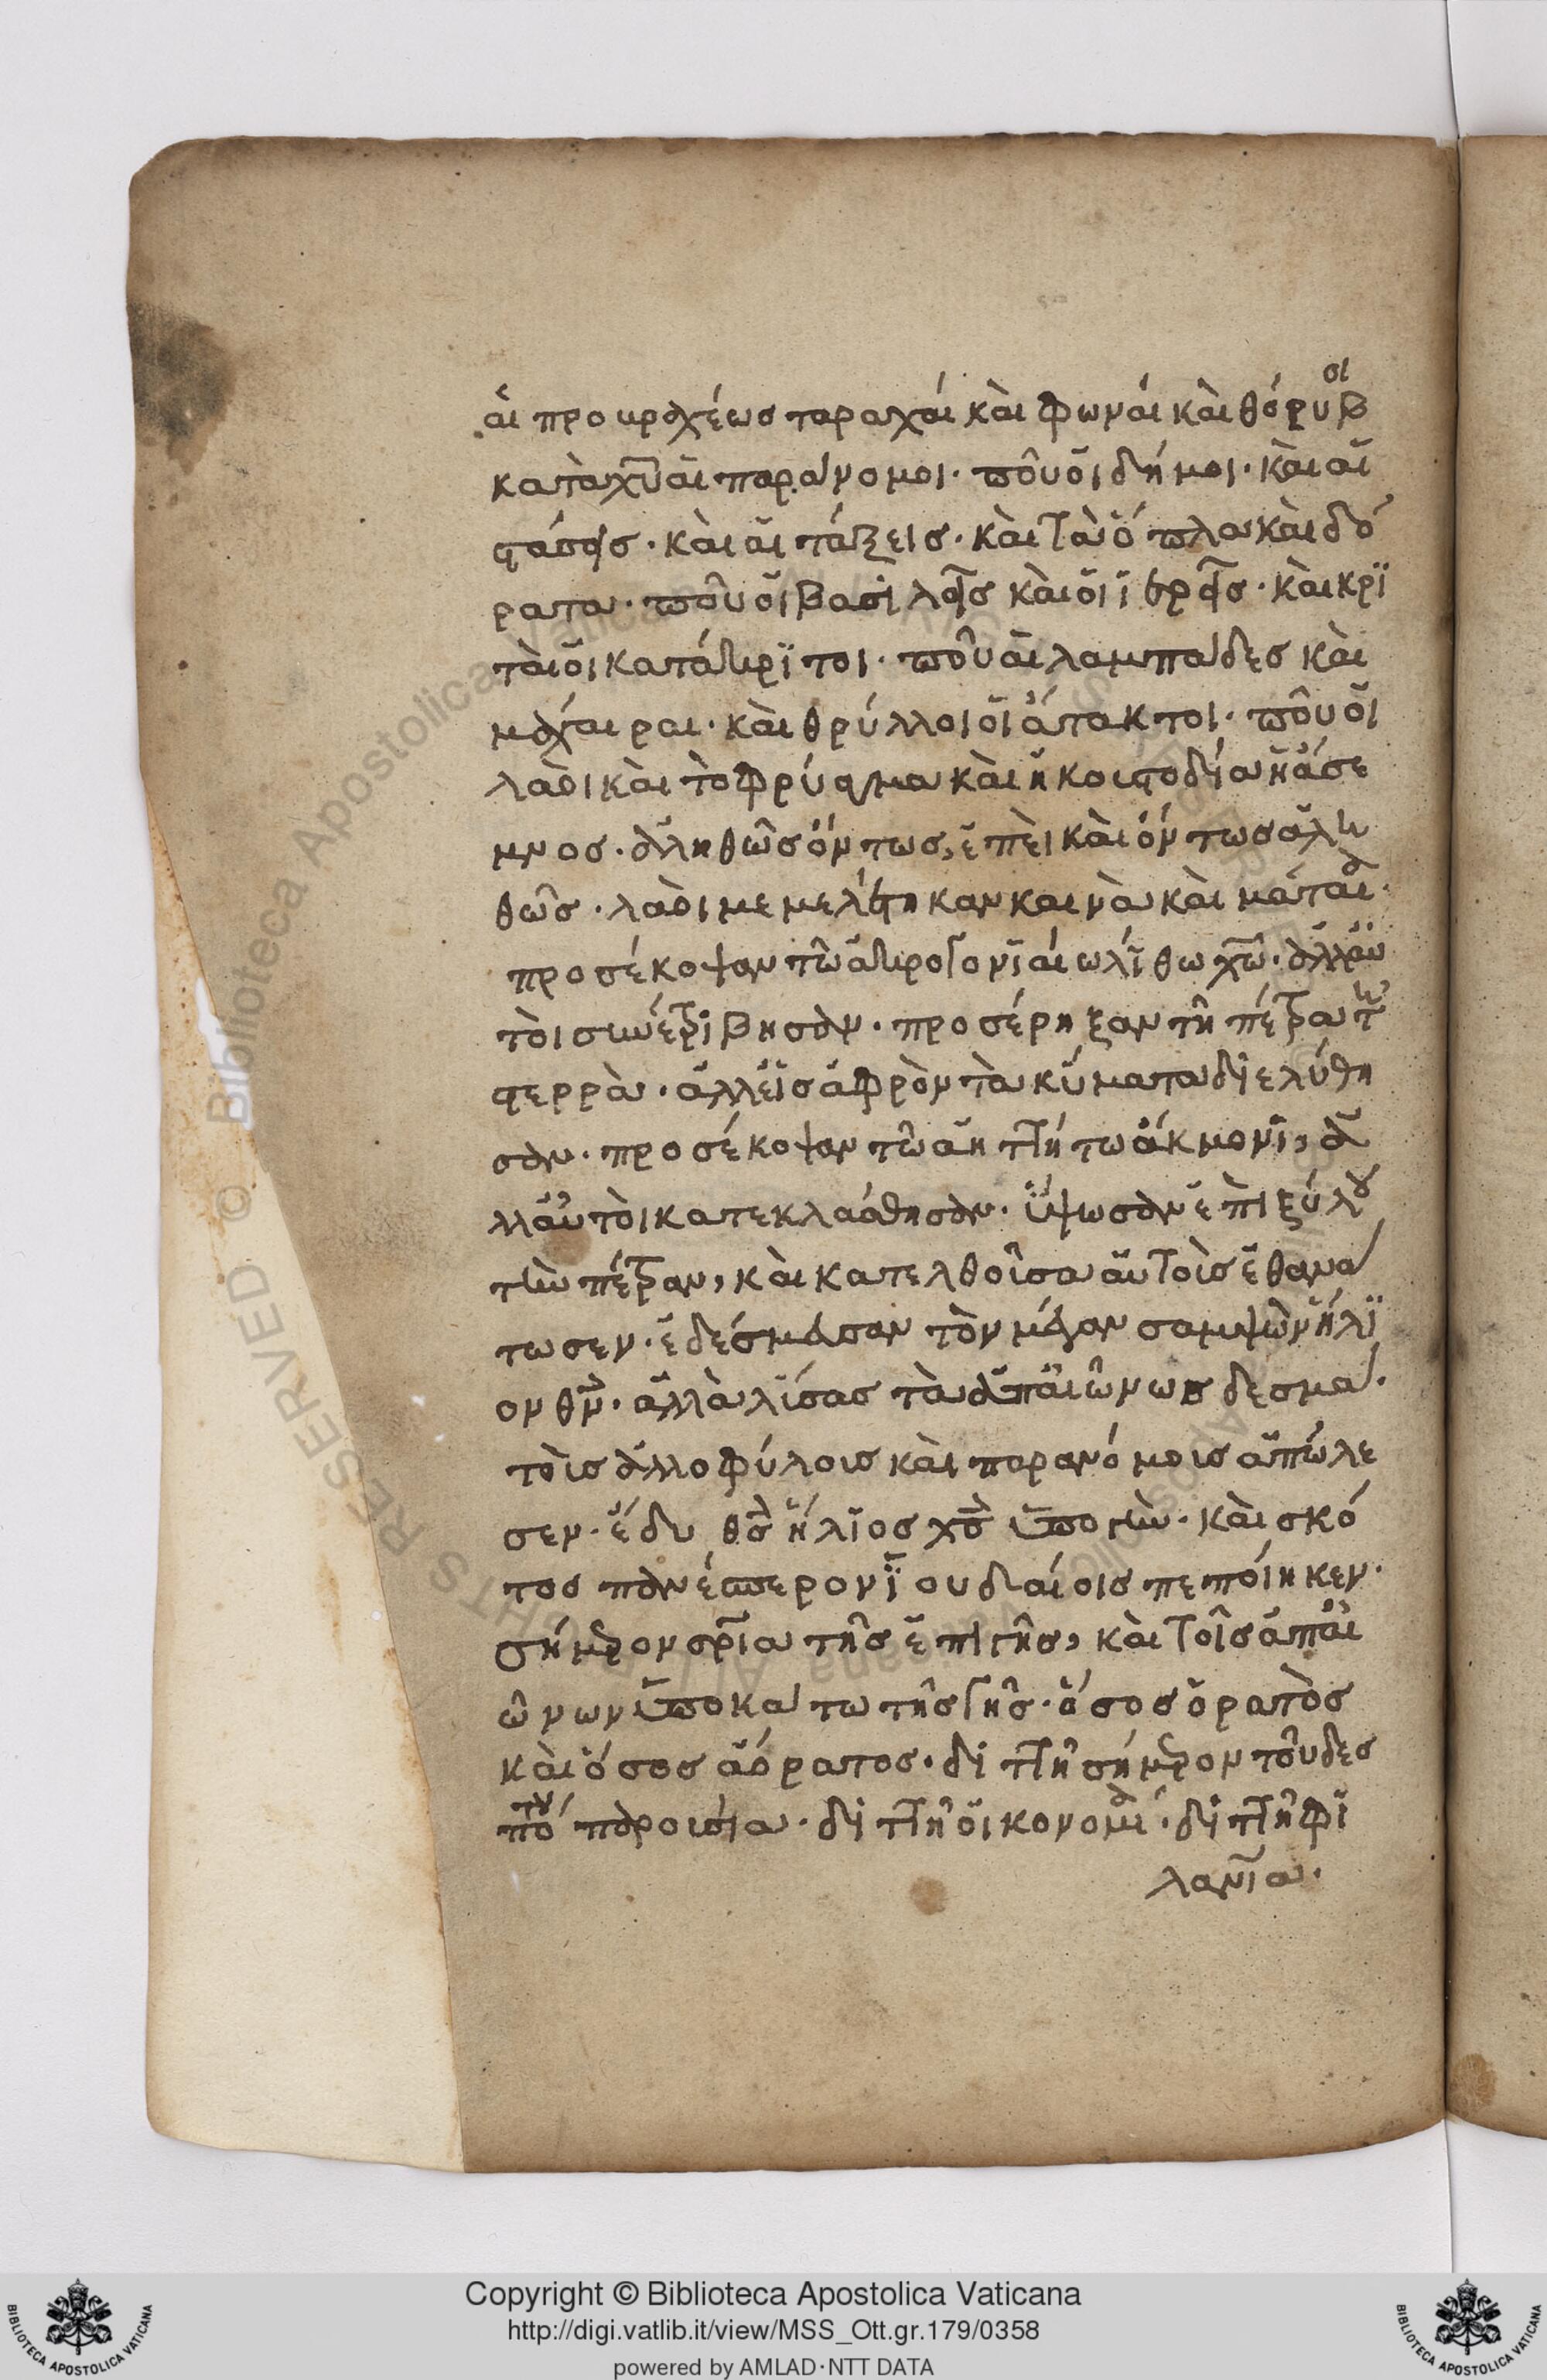 αἱ προ βραχέως ταραχαὶ καὶ φωναὶ καὶ θόρυβοι
κατὰ χυ αἱ παράνομοι· ποῦ οἱ δήμοι· καὶ αἱ
στάσεις· καὶ αἱ τάξεις· καὶ τὰ ὅπλα καὶ δό
ρατα· ποῦ οἱ βασιλεῖς καὶ οἱ ἱερεῖς· καὶ κρι
ταὶ οἱ κατάκριτοι· ποῦ αἱ λαμπάδες καὶ
μάχαιραι· καὶ θρύλλοι οἱ ἄτακτοι· ποῦ οἱ
λαοὶ καὶ τὸ φρύαγμα καὶ ἡ κουστοδία ἡ ἄσε
μνος· ἀληθῶς ὄντως, ἐπεὶ καὶ ὄντως ἀλη
θῶς· λαοὶ μεμελέτηκαν καινὰ καὶ μάταια·
προσέκοψαν τῶ ἀκρογονιαίω λίθω χω· ἀλλ αὐ
τοὶ συνετρίβησαν· προσέρηξαν τῆ πέτρα τῆ
στερρὰ· ἀλλ εἰς ἀφρὸν τὰ κύματα διελύθη
σαν· προσέκοψαν τῶ ἀηττήτω ἄκμονι, ἀ
λλ αὐτοὶ κατεκλάσθησαν· ὕψωσαν ἐπὶ ξύλου
τὴν πέτραν, καὶ κατελθοῦσα αὐτοὺς ἐθανά
τωσεν· ἐδέσμευσαν τὸν μέγαν σαμψὼν ἥλι
ον θν· ἀλλὰ λύσας τὰ ἀπ αἰῶνως δεσμὰ·
τοὺς ἀλλοφύλους καὶ παρανόμους ἀπώλε
σεν· ἔδυ θς ἥλιος χς ὑπο γὴν· καὶ σκό
τος πανέσπερον ἰουδαίοις πεποίηκεν·
σήμερον σρια τῆς ἐπὶ γῆς, καὶ τοῖς ἀπ αἰ
ῶνων ὑποκάτω τῆς γῆς· ὅσος ὁρατὸς
καὶ ὅσος ἀόρατος· διττὴ σήμερον τοῦ δεσ
πότου παρουσία· διττὴ οἰκονομία· διττὴ φι
λανια·